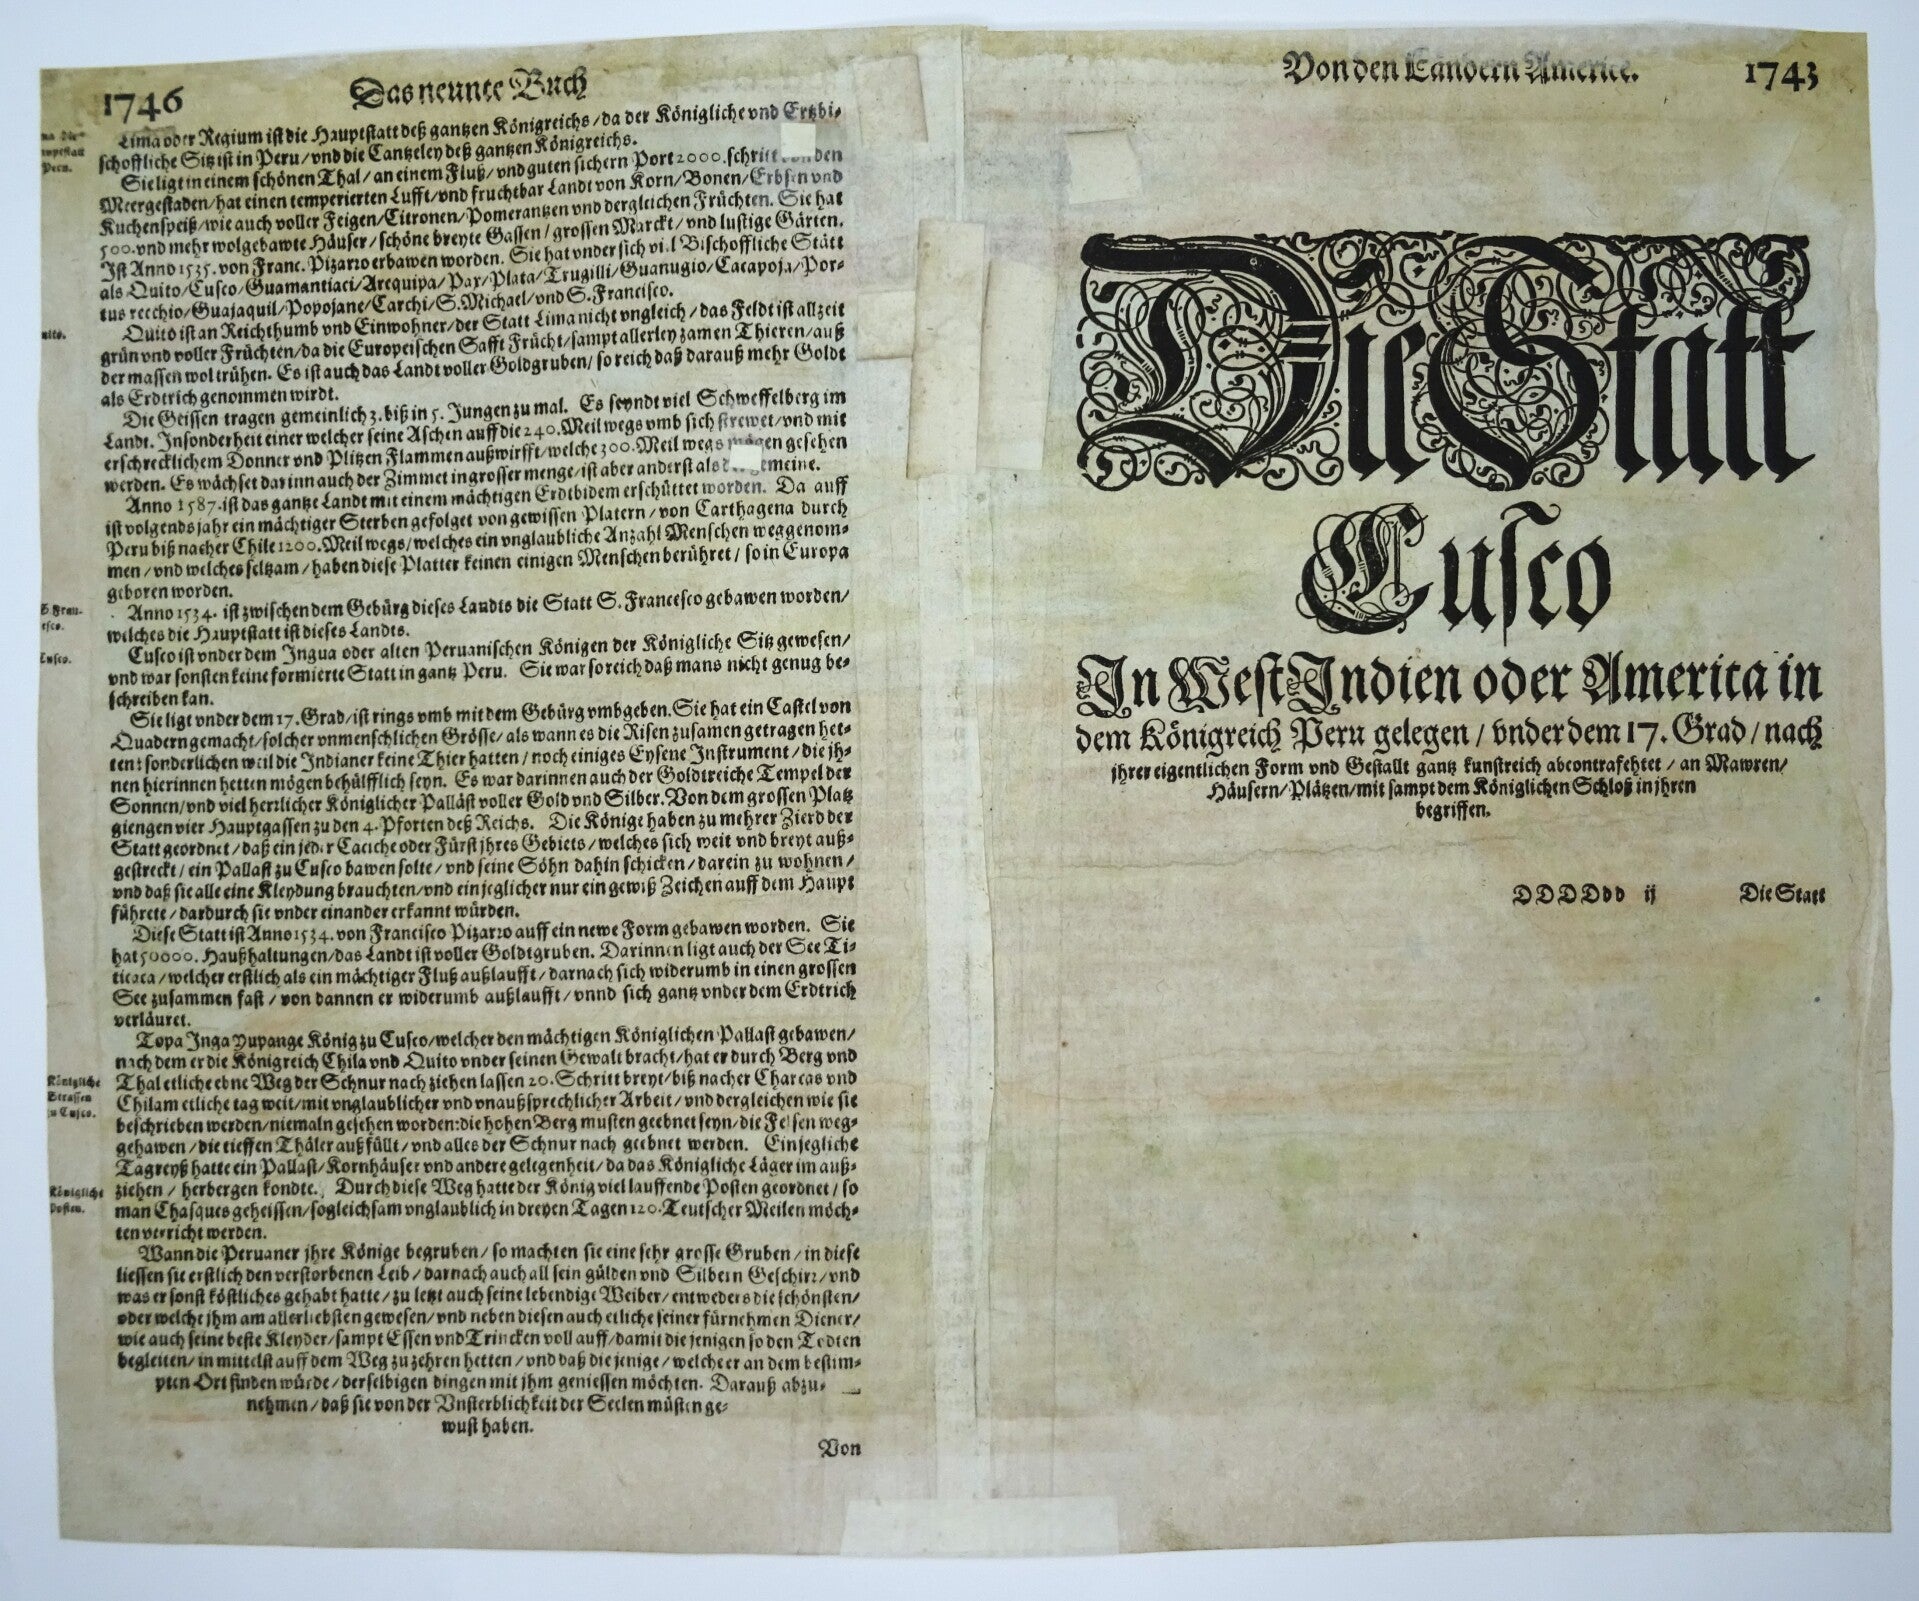 1746
Das neunte Buch
Lima oder Regium ist die Hauptstatt deß gantzen Königreichs/da der Königliche vnd Ertzbi-
schoffliche Sitz ist in Peru/vnd die Cantzeley deß gantzen Königreichs.
Sie ligt in einem schönen Thal/an einem Fluß/vnd guten sichern Port 2000.schritt den
Meergestaden/hat einen temperierten Lufft/vnd fruchtbar Landt von Korn/Bonen/Erbsen vnd
Kuchenspeiß/wie auch voller Feigen/Citronen/Pomerantzen vnd dergleichen Früchten. Sie hat
500.vnd mehr wolgebawte Häuser/schöne breyte Gassen/grossen Marckt/vnd lustige Gärten.
Ist Anno 1535.von Franc. Pizarro erbawen worden. Sie hat vnder sich viel Bischoffliche Stätt
als Quito/Cusco/Guamantiaci/Arequipa/Pax/Plata/Trugilli/Guanugio/Cacapoja/Por-
tus vecchio/Guajaquil/Popojane/Carchi/S.Michael/vnd S.Francisco.
Quito ist an Reichthumb vnd Einwohner/der Statt Lima nicht vngleich/das Feldt ist allzeit
grün vnd voller Früchten/da die Europeischen Safft Frücht/sampt allerley zamen Thieren/auß
der massen wol trühen. Es ist auch das Landt voller Goldgruben/so reich daß darauß mehr Goldt
als Erdtrich genommen wirdt.
Die Geissen tragen gemeinlich 3.biß in 5.Jungen zu mal. Es seyndt viel Schweffelberg im
Landt. Insonderheit einer welcher seine Aschen auff die 240.Meil wegs vmb sich strewet/vnd mit
erschrecklichem Donner vnd Plitzen Flammen außwirfft/welche 300.Meil wegs mögen gesehen
werden. Es wächset darinn auch der Zimmet in grosser menge/ist aber anderst als gemeine.
Anno 1587.ist das gantze Landt mit einem mächtigen Erdtbidem erschüttet worden. Da auff
ist volgends jahr ein mächtiger Sterben gefolget von gewissen Platern/von Carthagena durch
Peru biß nacher Chile 1200.Meil wegs/welches ein vnglaubliche Anzahl Menschen weggenom-
men/vnd welches seltzam/haben diese Platter keinen einigen Menschen berühret/so in Europa
geboren worden.
S Fran-
cisco.
Anno 1534. ist zwischen dem Gebürg dieses Landts die Statt S. Francesco gebawen worden/
welches die Hauptstatt ist dieses Landts.
Cusco.
Cusco ist vnder dem Ingua oder alten Peruanischen Königen der Königliche Sitz gewesen/
vnd war sonsten keine formierte Statt in gantz Peru. Sie war so reich daß mans nicht genug be-
schreiben kan.
Sie ligt vnder dem 17. Grad/ist rings vmb mit dem Gebürg vmbgeben. Sie hat ein Castel von
Quadern gemacht/solcher vnmenschlichen Grösse/als wann es die Risen zusamen getragen het-
ten: sonderlichen weil die Indianer keine Thier hatten/noch einiges Eysene Instrument/die jh-
nen hierinnen hetten mögen behülfflich seyn. Es war darinnen auch der Goldtreiche Tempel der
Sonnen/vnd viel herrlicher Königlicher Palläst voller Gold vnd Silber. Von dem grossen Platz
giengen vier Hauptgassen zu den 4.Pforten deß Reichs. Die Könige haben zu mehrer Zierd der
Statt geordnet/daß ein jeder Caciche oder Fürst jhres Gebiets/welches sich weit vnd breyt auß-
gestreckt/ein Pallast zu Cusco bawen solte/vnd seine Söhn dahin schicken/darein zu wohnen/
vnd daß sie alle eine Kleydung brauchten/vnd ein jeglicher nur ein gewiß Zeichen auff dem Haupt
führete/dardurch sie vnder einander erkannt würden.
Diese Statt ist Anno 1534. von Francisco Pizarro auff ein newe Form gebawen worden. Sie
hat 50000. Haußhaltungen/das Landt ist voller Goldtgruben. Darinnen ligt auch der See Ti-
ticaca/welcher erstlich als ein mächtiger Fluß außlaufft/darnach sich widerumb in einen grossen
See zusammen fast/von dannen er widerumb außlaufft/vnnd sich gantz vnder dem Erdtrich
verläuret.
Topa Inga Yupange König zu Cusco/welcher den mächtigen Königlichen Pallast gebawen/
nach dem er die Königreich Chila vnd Quito vnder seinen Gewalt bracht/hat er durch Berg vnd
Königliche
Strassen
zu Cusco.
Thal etliche ebne Weg der Schnur nach ziehen lassen 20. Schritt breyt/biß nacher Charcas vnd
Chilam etliche tag weit/mit vnglaublicher vnd vnaußsprechlicher Arbeit/vnd dergleichen wie sie
beschrieben werden/niemaln gesehen worden: die hohen Berg musten geebnet seyn/die Felsen weg-
gehawen/die tieffen Thäler außfüllt/vnd alles der Schnur nach geebnet werden. Ein jegliche
Tagreyß hatte ein Pallast/Kornhäuser vnd andere gelegenheit/da das Königliche Läger im auß-
Königliche
Posten.
ziehen/herbergen kondte. Durch diese Weg hatte der König viel lauffende Posten geordnet/so
man Chasques geheissen/so gleichsam vnglaublich in dreyen Tagen 120.Teutscher Meilen möch-
ten verricht werden.
Wann die Peruaner jhre Könige begruben/so machten sie eine sehr grosse Gruben/in diese
liessen sie erstlich den verstorbenen Leib/darnach auch all sein gülden vnd Silbern Geschirr/vnd
was er sonst köstliches gehabt hatte/zu letzt auch seine lebendige Weiber/entweders die schönsten/
oder welche jhm am allerliebsten gewesen/vnd neben diesen auch etliche seiner fürnehmen Diener/
wie auch seine beste Kleyder/sampt Essen vnd Trincken voll auff/damit die jenigen so den Todten
begleiten/in mittelst auff dem Weg zu zehren hetten/vnd daß die jenige/welche er an dem bestim-
pten Ort finden würde/derselbigen dingen mit jhm geniessen möchten. Darauß abzu-
nehmen/daß sie von der Vnsterblichkeit der Seelen müsten ge-
wust haben.
Von
Von den Ländern Americe.
1743
Die Statt
Cusco
In West Indien oder America in
dem Königreich Peru gelegen/vnder dem 17. Grad/nach
jhrer eigentlichen Form vnd Gestallt gantz kunstreich abcontrafehtet/an Mawren/
Häusern/Plätzen/mit sampt dem Königlichen Schloß in jhren
begriffen.
DDDDdd ij
Die Statt